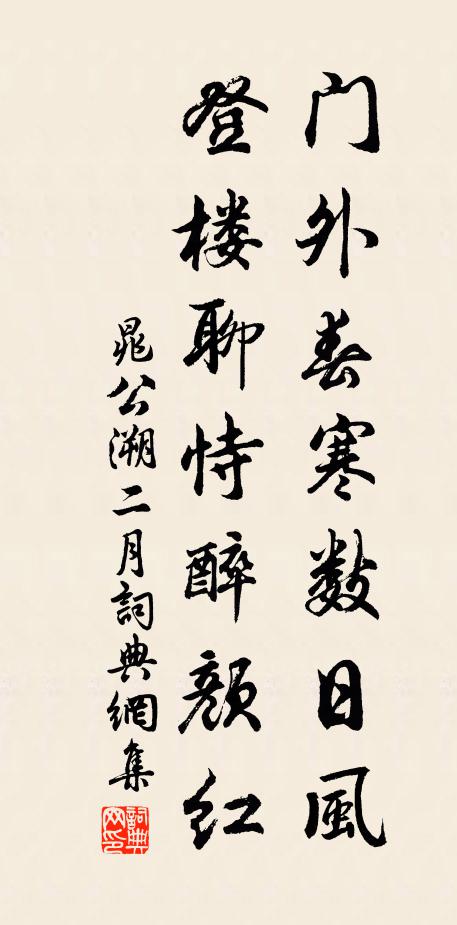 门外春寒数日風
登楼聊恃醉颜红
晁公溯二月詞典網集
詞典网印